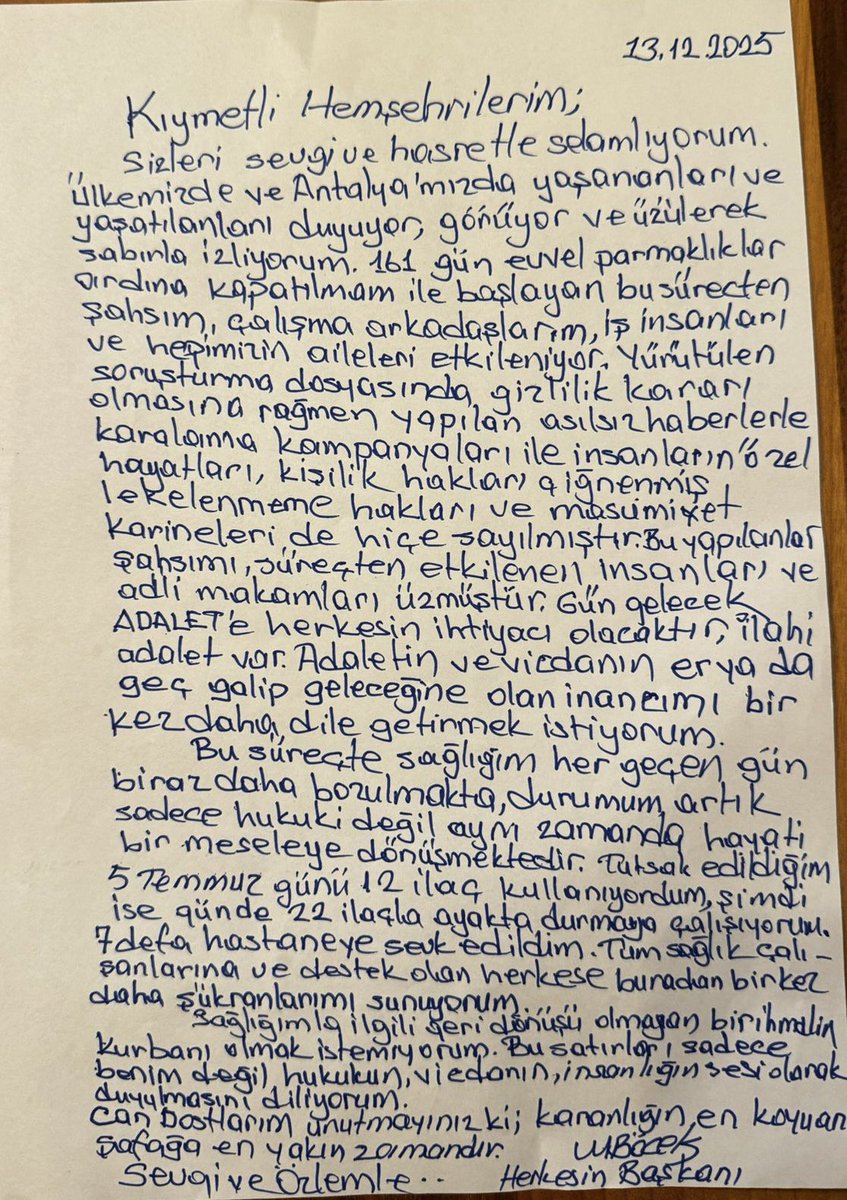 13.12.2025
Kıymetli Hemşehrilerim;
Sizleri sevgi ve hasretle selamlıyorum.
Ülkemizde ve Antalya'mızda yaşananları ve
yaşatılanları duyuyor, görüyor ve üzülerek
sabırla izliyorum. 161 gün evvel parmaklıklar
ardına kapatılmam ile başlayan bu süreçten
şahsım, çalışma arkadaşlarım, iş insanları
ve hepimizin aileleri etkileniyor. Yürütülen
soruşturma dosyasında gizlilik kararı
olmasına rağmen yapılan asılsız haberlerle
karalama kampanyaları ile insanların özel
hayatları, kişilik hakları çiğnenmiş,
lekelenmeme hakları ve masumiyet
karineleri de hiçe sayılmıştır. Bu yapılanlar
şahsımı, süreçten etkilenen insanları ve
adli makamları üzmüştür. Gün gelecek
ADALET'e herkesin ihtiyacı olacaktır, ilahi
adalet var. Adaletin ve vicdanın er ya da
geç galip geleceğine olan inancımı bir
kez daha dile getirmek istiyorum.
Bu süreçte sağlığım her geçen gün
biraz daha bozulmakta, durumum artık
sadece hukuki değil aynı zamanda hayati
bir meseleye dönüşmektedir. Tutsak edildiğim
5 Temmuz günü 12 ilaç kullanıyordum, şimdi
ise günde 22 ilaçla ayakta durmaya çalışıyorum.
7 defa hastaneye sevk edildim. Tüm sağlık çalı-
şanlarına ve destek olan herkese buradan bir kez
daha şükranlarımı sunuyorum.
Sağlığımla ilgili geri dönüşü olmayan bir ihmalin
kurbanı olmak istemiyorum. Bu satırları sadece
benim değil hukukun, vicdanın, insanlığın sesi olarak
duyulmasını diliyorum.
Can Dostlarım unutmayınız ki; karanlığın en koyu anı
şafağa en yakın zamandır. M.Böcek
Sevgi ve Özlemle.. Herkesin Başkanı